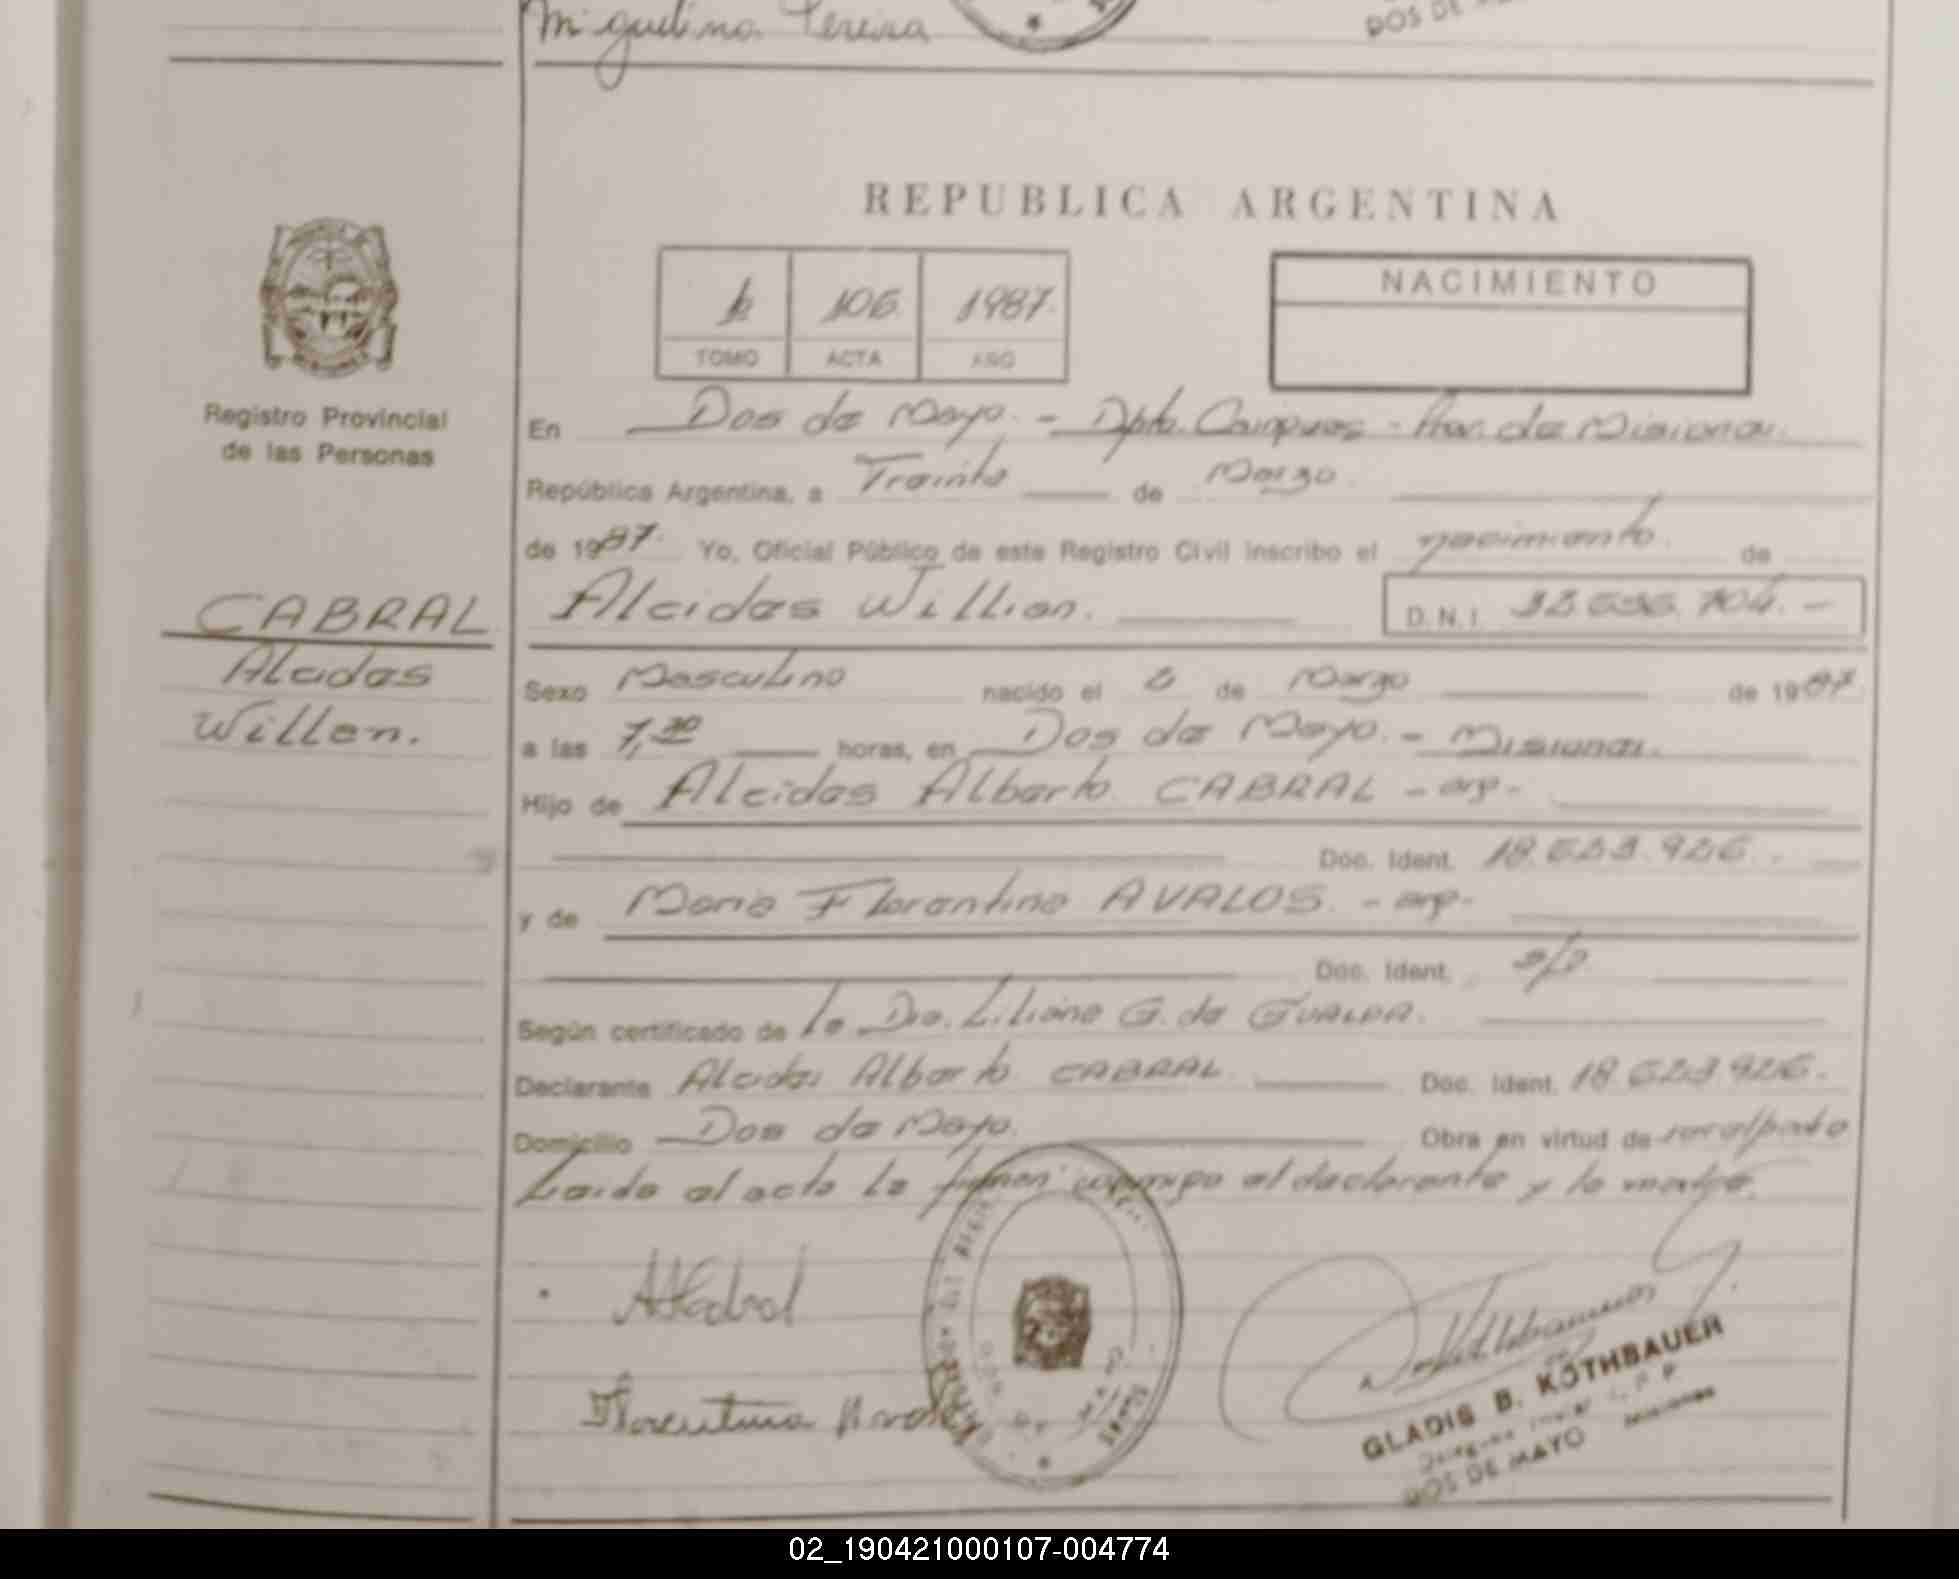 Miguelina Pereira
DOS DE
REPUBLICA ARGENTINA
NACIMIENTO
106 1987.
TOMO ACTA AÑO
Registro Provincial
de las Personas
En Dos de Mayo. - Dpto. Cainguas - Prov. de Misiones.
República Argentina, a Treinta de Marzo
de 1987. Yo, Oficial Público de este Registro Civil inscribo el nacimiento. de
CABRAL
Alcides
Willian.
Alcides Willian. D.N.I.
Sexo Masculino nacido el de Marzo de 1987
a las 7,30 horas, en Dos de Mayo. - Misiones.
Hijo de Alcides Alberto CABRAL - arg -
Doc. Ident.
y de Maria Florentina AVALOS. - arg -
Doc. Ident.
Según certificado de la Dra. Liliana G. de
Declarante Alcides Alberto CABRAL Doc. Ident.
Domicilio Dos de Mayo. Obra en virtud de
Leida el acta la firman conmigo el declarante y la madre.
ACabral
Florentina Avalos
GLADIS B. KOTHBAUER
DOS DE MAYO Misiones
02_190421000107-004774